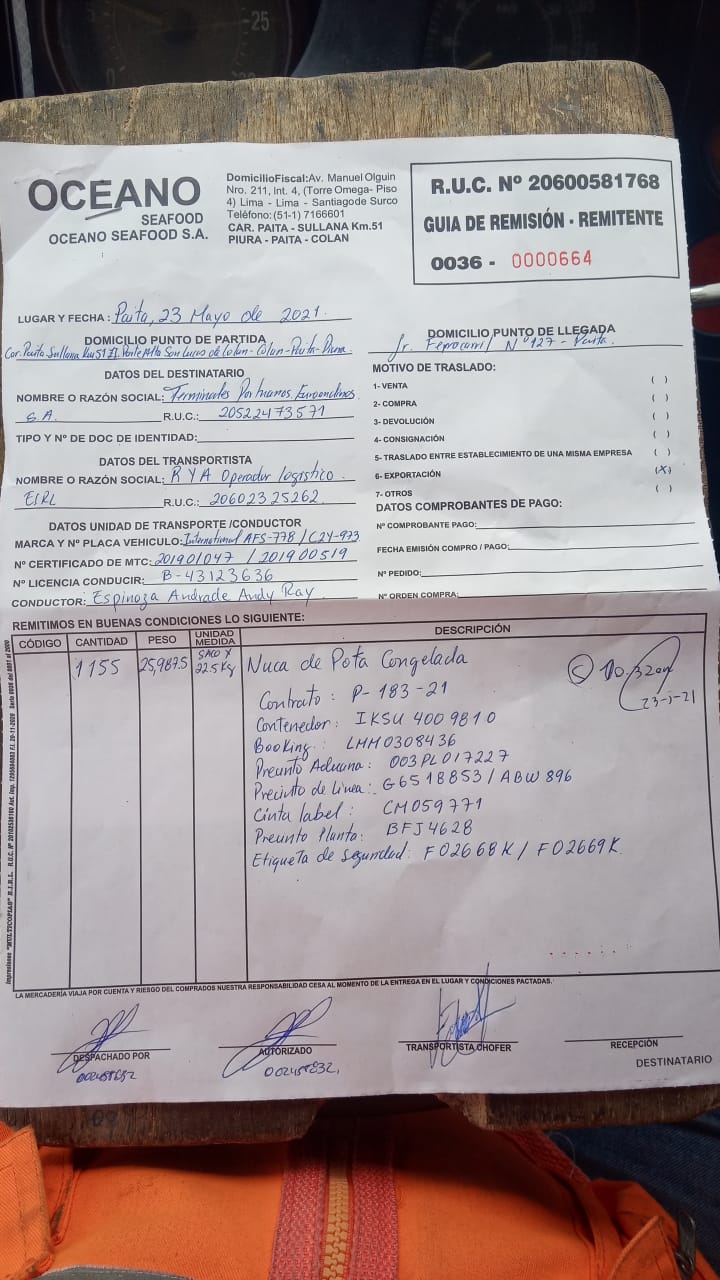 OCEANO
SEAFOOD
OCEANO SEAFOOD S.A.
DomicilioFiscal:Av. Manuel Olguin
Nro. 211, Int. 4, (Torre Omega- Piso
4) Lima - Lima - Santiagode Surco
Teléfono:(51-1) 7166601
CAR. PAITA - SULLANA Km.51
PIURA - PAITA - COLAN
R.U.C. Nº 20600581768
GUIA DE REMISIÓN - REMITENTE
0036 - 0000664
LUGAR Y FECHA : Paita, 23 Mayo de 2021.
DOMICILIO PUNTO DE PARTIDA
Car. Paita Sullana Km 51 San Lucas de Colan - Colan - Paita - Piura.
DOMICILIO PUNTO DE LLEGADA
Jr. Ferrocarril Nº 127 - Paita.
DATOS DEL DESTINATARIO
NOMBRE O RAZÓN SOCIAL: Terminales Portuarios Euroandinos
S.A. R.U.C.: 20522473571
TIPO Y Nº DE DOC DE IDENTIDAD:
DATOS DEL TRANSPORTISTA
NOMBRE O RAZÓN SOCIAL: R Y A Operador logistico
EIRL R.U.C.: 20602325262
DATOS UNIDAD DE TRANSPORTE /CONDUCTOR
MARCA Y Nº PLACA VEHICULO: International AFS-778 / C2Y-973
Nº CERTIFICADO DE MTC: 201901047 / 201900519
Nº LICENCIA CONDUCIR: B-43123636
CONDUCTOR: Espinoza Andrade Andy Ray
MOTIVO DE TRASLADO:
1- VENTA ( )
2- COMPRA ( )
3- DEVOLUCIÓN ( )
4- CONSIGNACIÓN ( )
5- TRASLADO ENTRE ESTABLECIMIENTO DE UNA MISMA EMPRESA ( )
6- EXPORTACIÓN (X)
7- OTROS ( )
DATOS COMPROBANTES DE PAGO:
Nº COMPROBANTE PAGO:
FECHA EMISIÓN COMPRO / PAGO:
Nº PEDIDO:
Nº ORDEN COMPRA:
REMITIMOS EN BUENAS CONDICIONES LO SIGUIENTE:
CÓDIGO CANTIDAD PESO UNIDAD MEDIDA DESCRIPCIÓN
1155 25,987.5 SACO X 22.5 Kg Nuca de Pota Congelada
Contrato : P-183-21
Contenedor: IKSU 400 981 0
Booking : LMM0308436
Precinto Aduana: 003PL017227
Precinto de Linea: G6518853 / ABW 896
Cinta label : CM059771
Precinto Planta: BFJ4628
Etiqueta de seguridad: F02668K / F02669K
LA MERCADERÍA VIAJA POR CUENTA Y RIESGO DEL COMPRADOS NUESTRA RESPONSABILIDAD CESA AL MOMENTO DE LA ENTREGA EN EL LUGAR Y CONDICIONES PACTADAS.
DESPACHADO POR
AUTORIZADO
TRANSPORTISTA CHOFER
RECEPCIÓN
DESTINATARIO
25